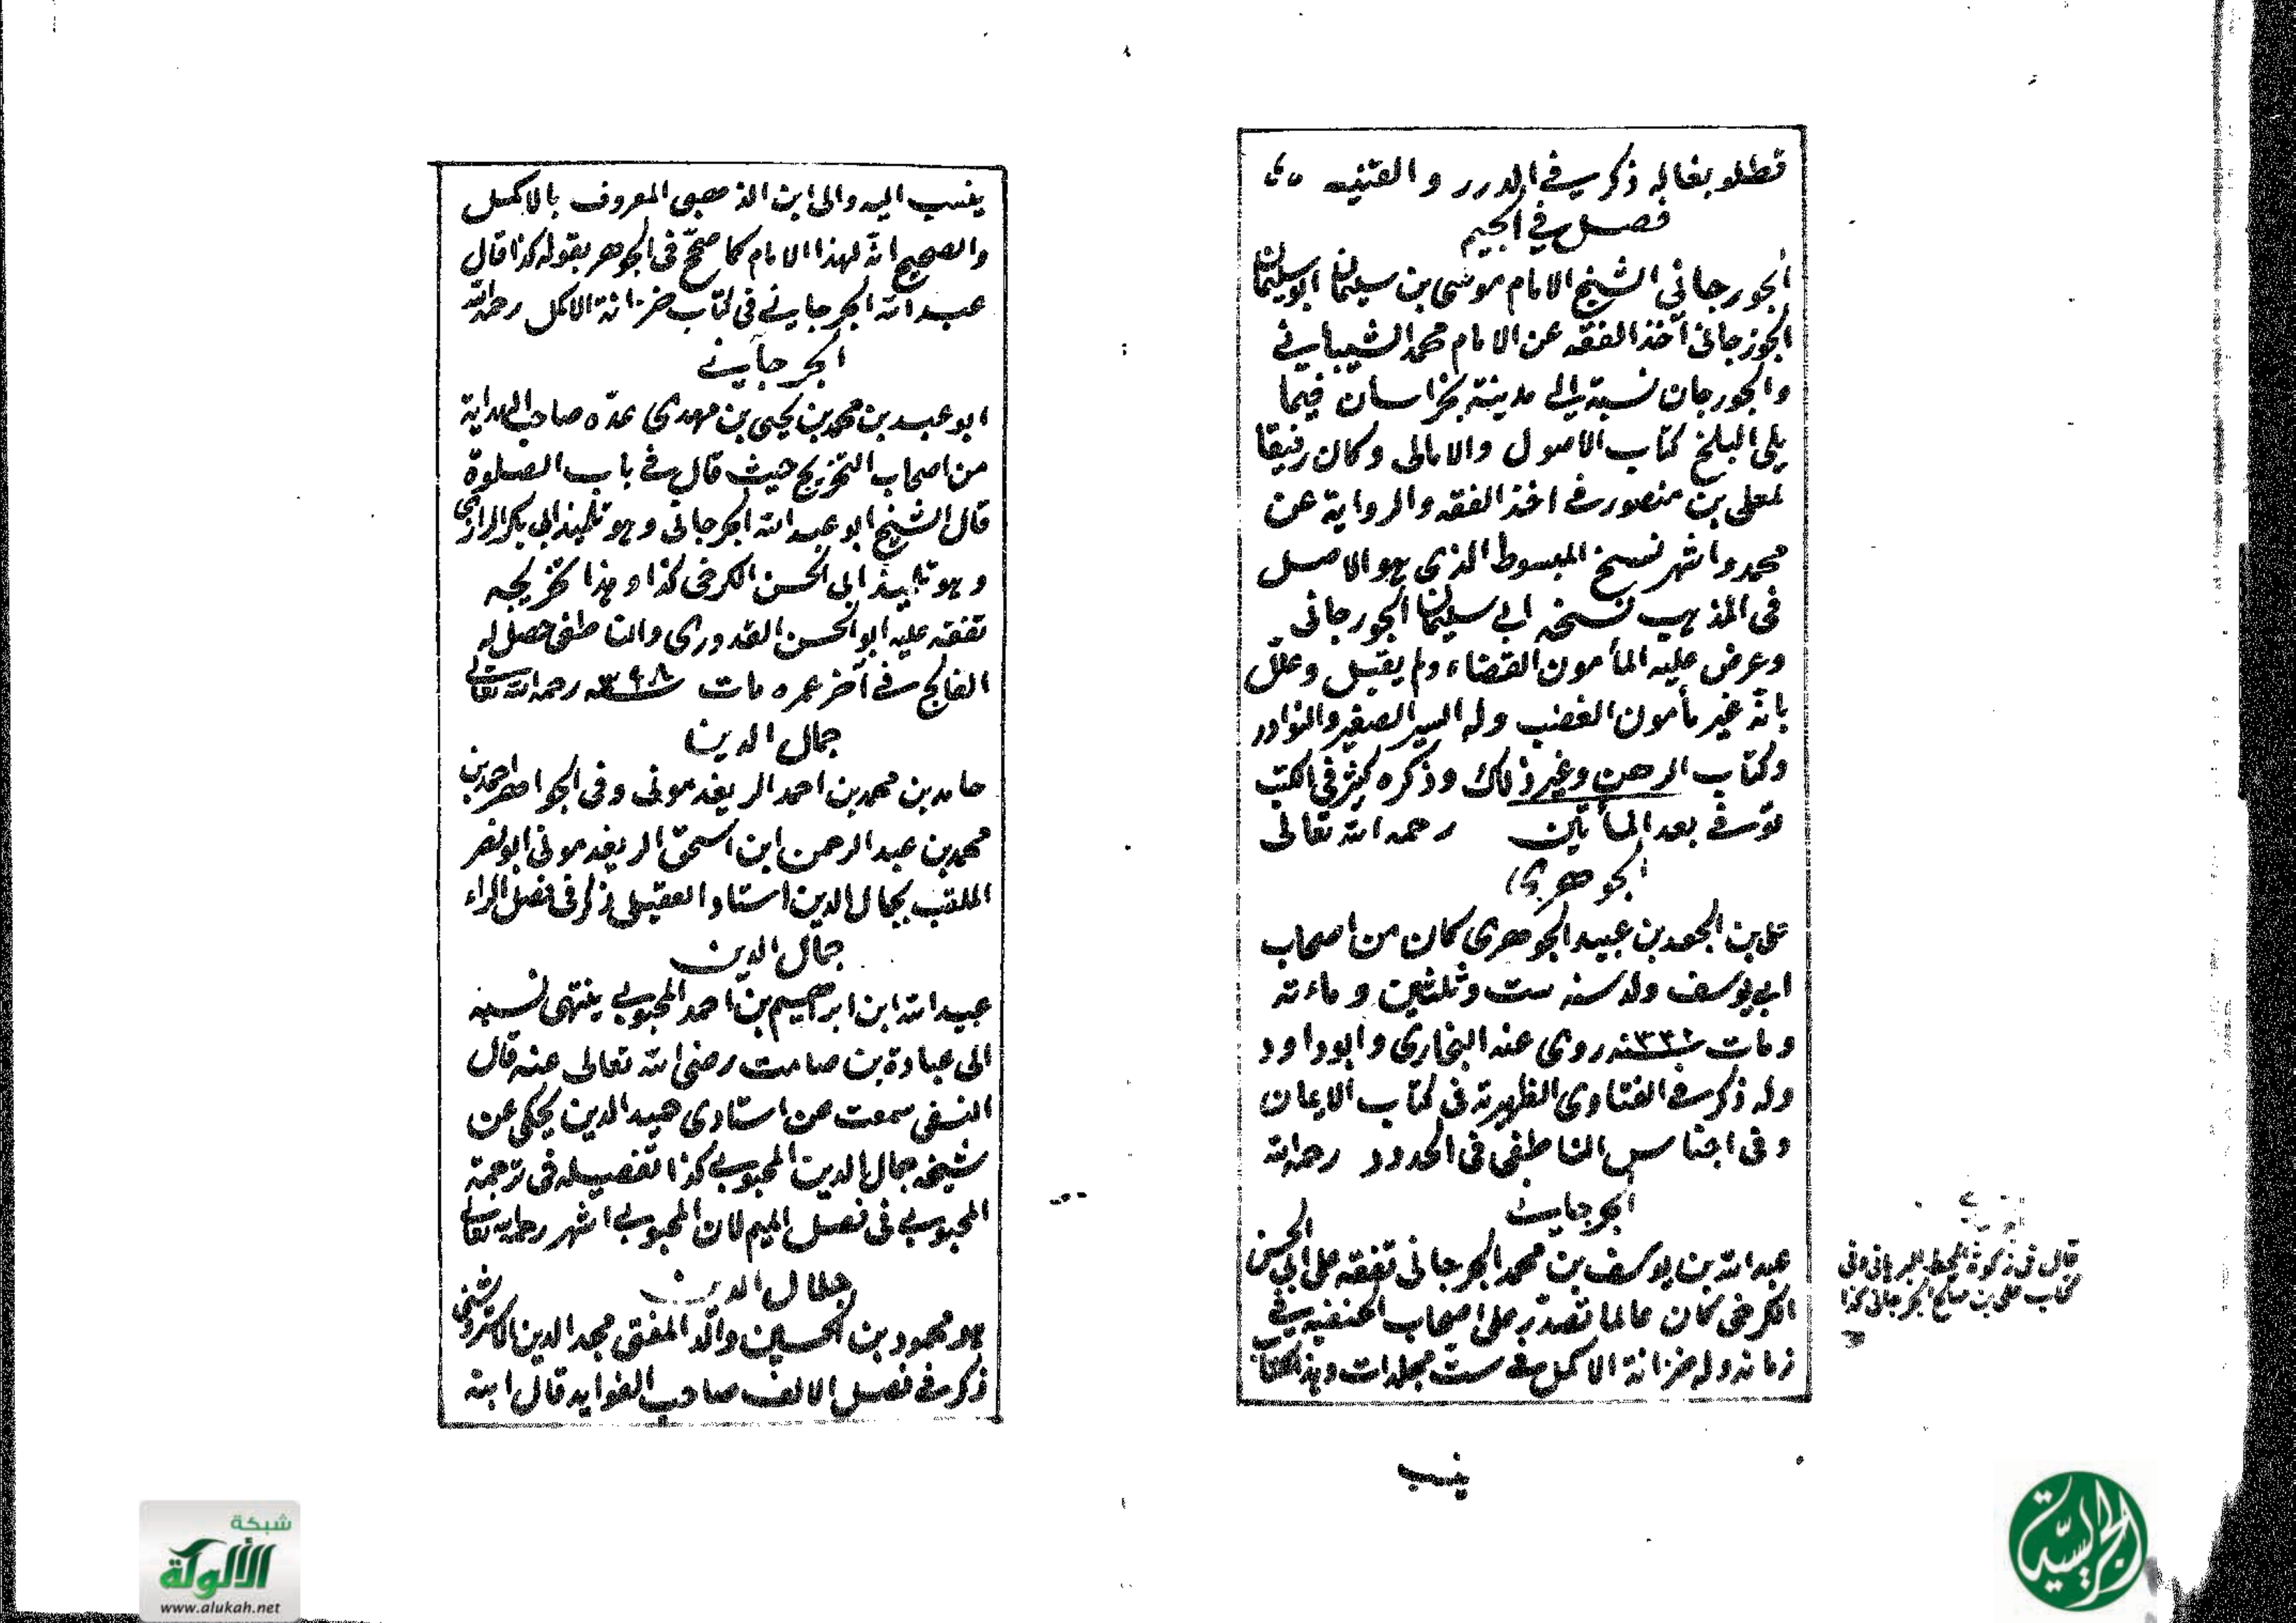 قطلوبغاله ذكر في الدرر والقنيه
فصل في الجيم
الجورجاني الشيخ الامام موسى بن سليمان ابو سليمان
الجوزجانى أخذ الفقه عن الامام محمد الشيباني
والجورجان نسبة إلى مدينة بخراسان فيما
يلى البلخ كتاب الاصول والامالى وكان رفيقا
لمعلى بن منصور في اخذ الفقه والرواية عن
محمد واشهر نسخ المبسوط الذى هو الاصل
فى المذهب نسخة ابي سليمان الجورجانى
وعرض عليه المأمون القضاء ولم يقبل وعلل
بانه غير مأمون الغضب وله السير الصغير والنوادر
وكتاب الرهن وغير ذلك وذكره كثر في الكتب
توفي بعد المأتين رحمه الله تعالى
الجوهري
على بن الجعد بن عبيد الجوهرى كان من اصحاب
ابي يوسف ولد سنه ست وثلثين وماءته
ومات سنه روى عنه البخاري وابو داود
وله ذكر في الفتاوى الظهيرية فى كتاب الايمان
وفى اجناس الناطفى فى الحدود رحمه الله
الجرجاني
عبد الله بن يوسف بن محمد الجرجانى تفقه على ابى الحسن
الكرخى كان عالما تصدر على اصحاب الحنفيه في
زمانه وله خزانة الاكمل في ست مجلدات وهذا الكتاب
ينسب
قال فى زكوة المحيط البرهانى وفى
كتاب على بن صالح الجرجانى كذا
ينسب اليه والى ابن الذهبى المعروف بالاكمل
والصحيح انه لهذا الامام كما صحح فى الجوهر بقوله كذا قال
عبد الله الجرجاني فى كتاب خزانة الاكمل رحمه الله
الجرجاني
ابو عبد بن محمد بن يحيى بن مهدى عده صاحب الهداية
من اصحاب التخريج حيث قال في باب الصلوة
قال الشيخ ابو عبد الله الجرجانى وهو تلميذ ابي بكر الرازى
وهو تلميذ ابى الحسن الكرخى كذا وهذا تخريجه
تفقه عليه ابو الحسن القدورى والناطفى حصل له
الفالج في آخر عمره مات سنه ٣٩٨ رحمه الله تعالى
جمال الدين
حامد بن محمد بن احمد الريغدمونى وفى الجواهر احمد بن
محمد بن عبد الرحمن ابن اسحق الريغدمونى ابو نصر
الملقب بجمال الدين استاد العقيلى ذكر فى فصل الراء
جمال الدين
عبيد الله ابن ابراهيم بن احمد المحبوبي ينتهى نسبه
الى عبادة بن صامت رضى الله تعالى عنه قال
النسفى سمعت من استادى حميد الدين يحكى عن
شيخه جمال الدين المحبوبي كذا تفصيله فى ترجمة
المحبوبي فى فصل الميم لان المحبوبي اشهر رحمه الله تعالى
جلال الدين
هو محمود بن الحسين والد المفتى مجد الدين الاستروشنى
ذكر في فصل الالف صاحب الفوايد قال ابنه
شبكة
الألوكة
www.alukah.net